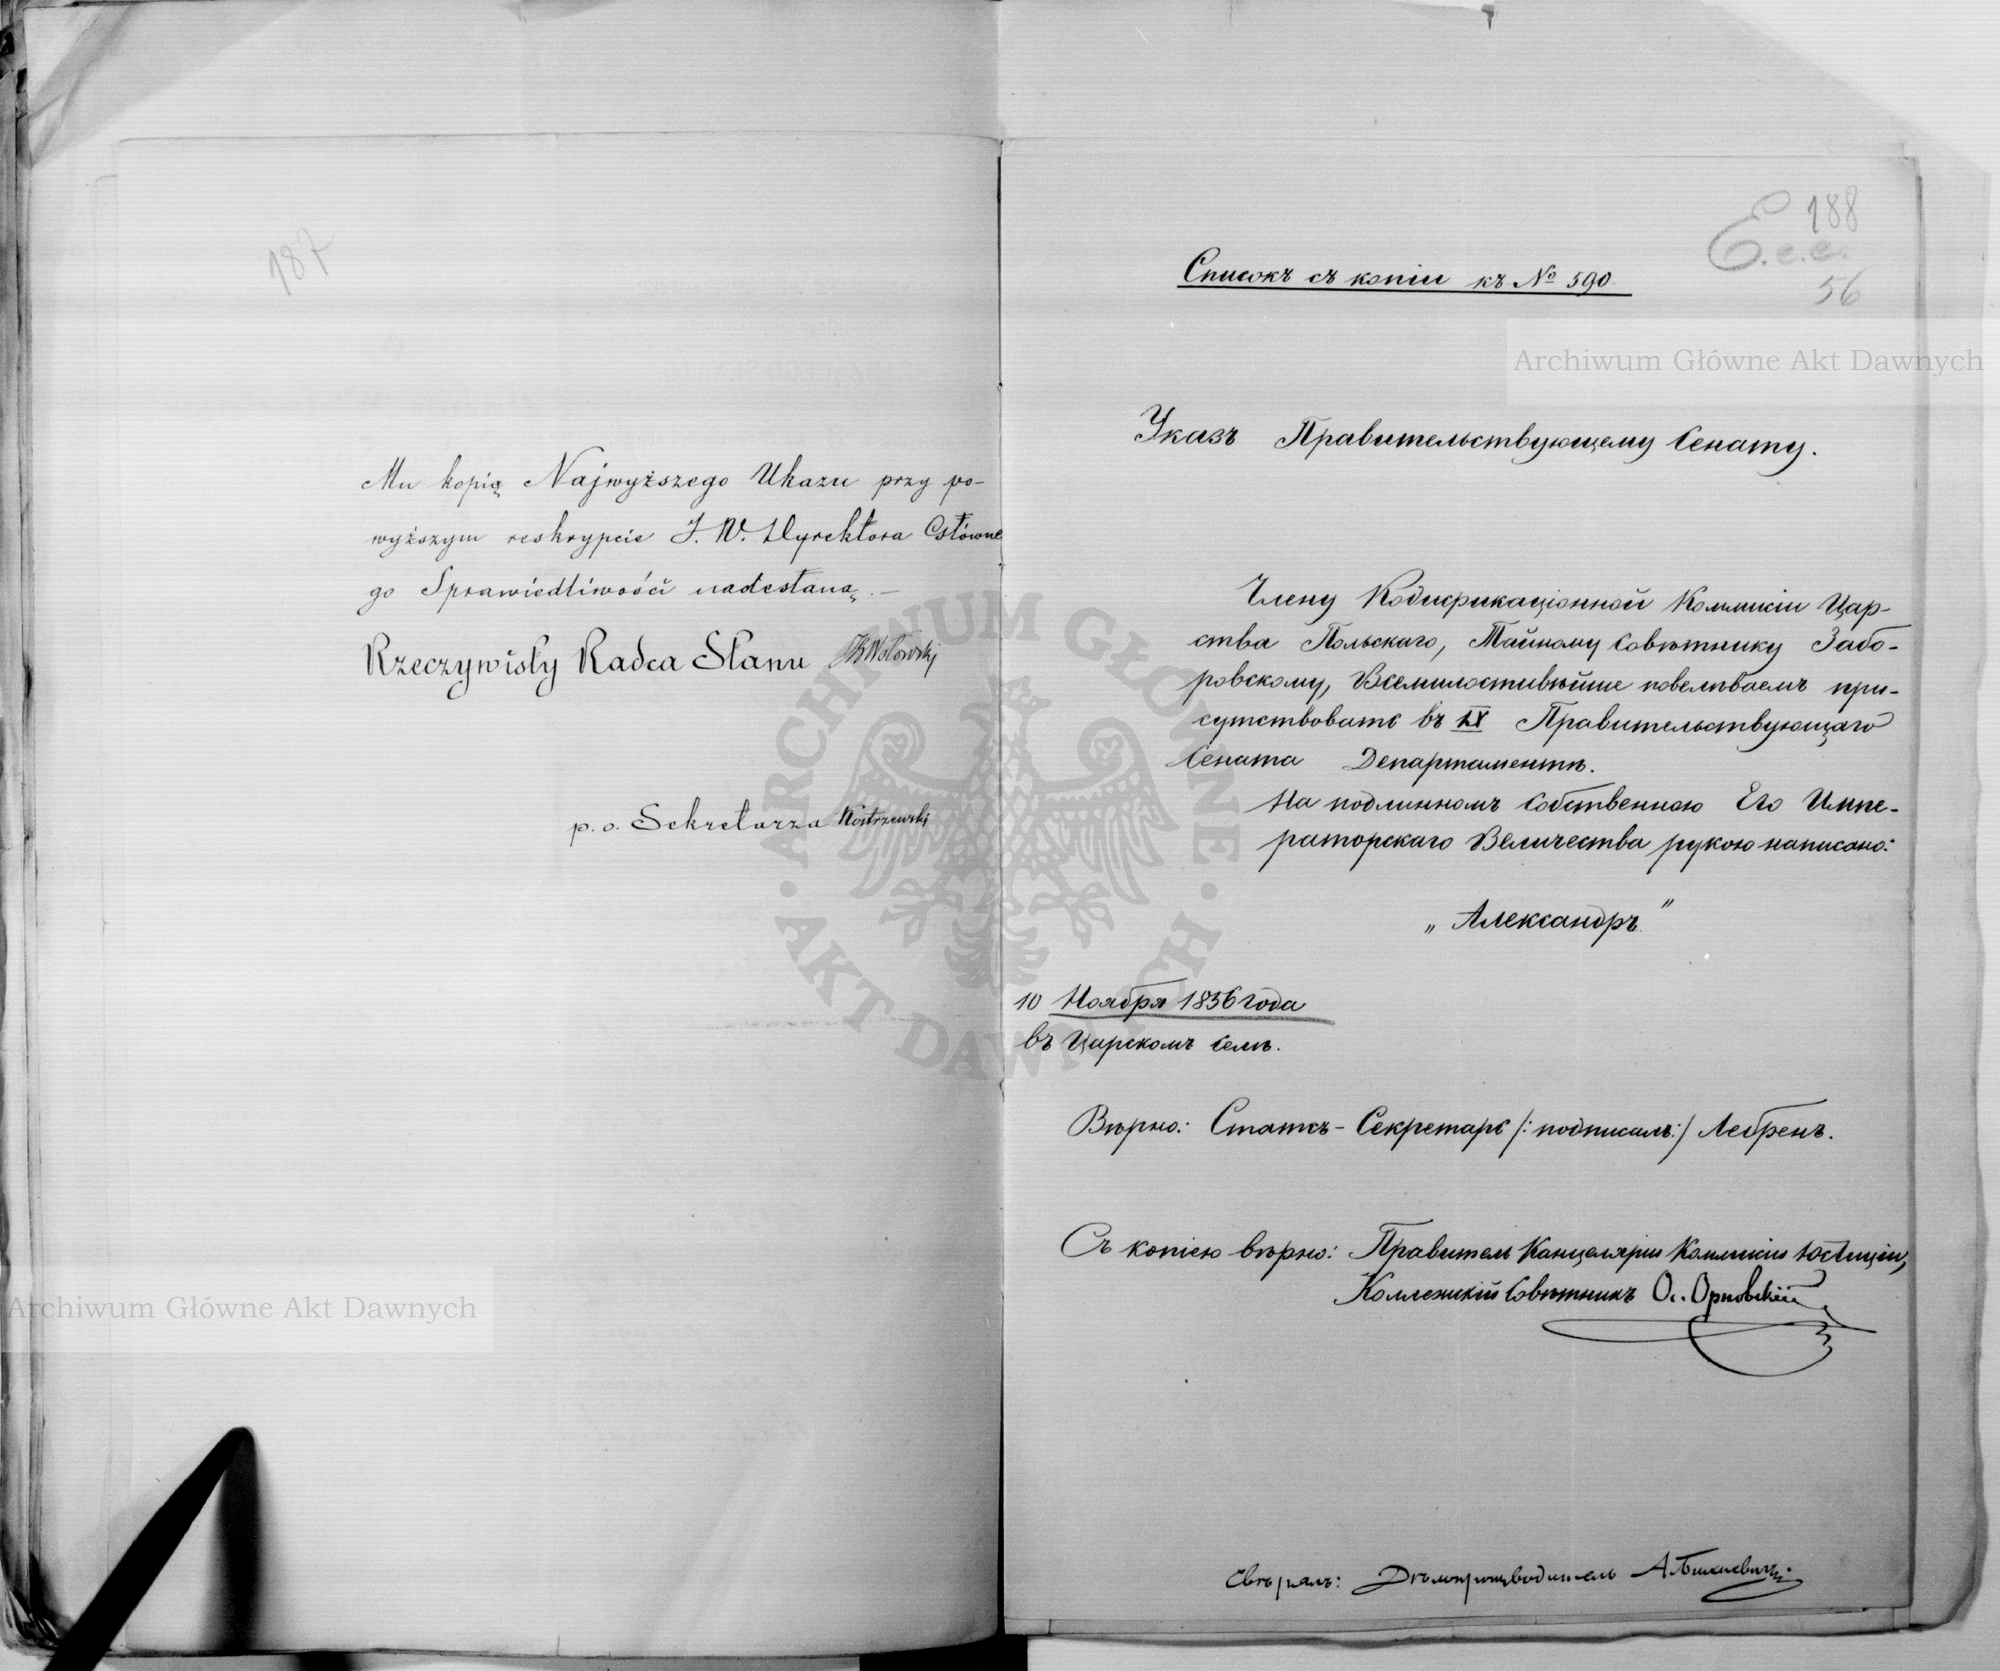 187
Mu kopią Najwyższego Ukazu przy po-
wyższym reskrypcie J. W. Dyrektora Główne
go Sprawiedliwości nadesłaną. —
Rzeczywisty Radca Stanu JKWołowski
p. o. Sekretarza Kostrzewski
188
56
Списокъ съ копіи къ № 590
Указъ Правительствующему Сенату.
Члену Кодификаціонной Коммисіи Цар-
ства Польскаго, Тайному Совѣтнику Забо-
ровскому, Всемилостивѣйше повелѣваемъ при-
сутствовать въ IX Правительствующаго
Сената Департаментѣ.
На подлинномъ Собственною Его Импе-
раторскаго Величества рукою написано:
„Александръ"
10 Ноября 1856 года
въ Царскомъ Селѣ.
Вѣрно: Статсъ-Секретарь /:подписалъ:/ Лебренъ.
Съ копіею вѣрно: Правитель Канцеляріи Коммисіи Юстиціи,
Коллежскій Совѣтникъ Ос. Орловскій
Свѣрялъ: Дѣлопроизводитель
Archiwum Główne Akt Dawnych
Archiwum Główne Akt Dawnych
· ARCHIWUM GŁÓWNE · AKT DAWNYCH